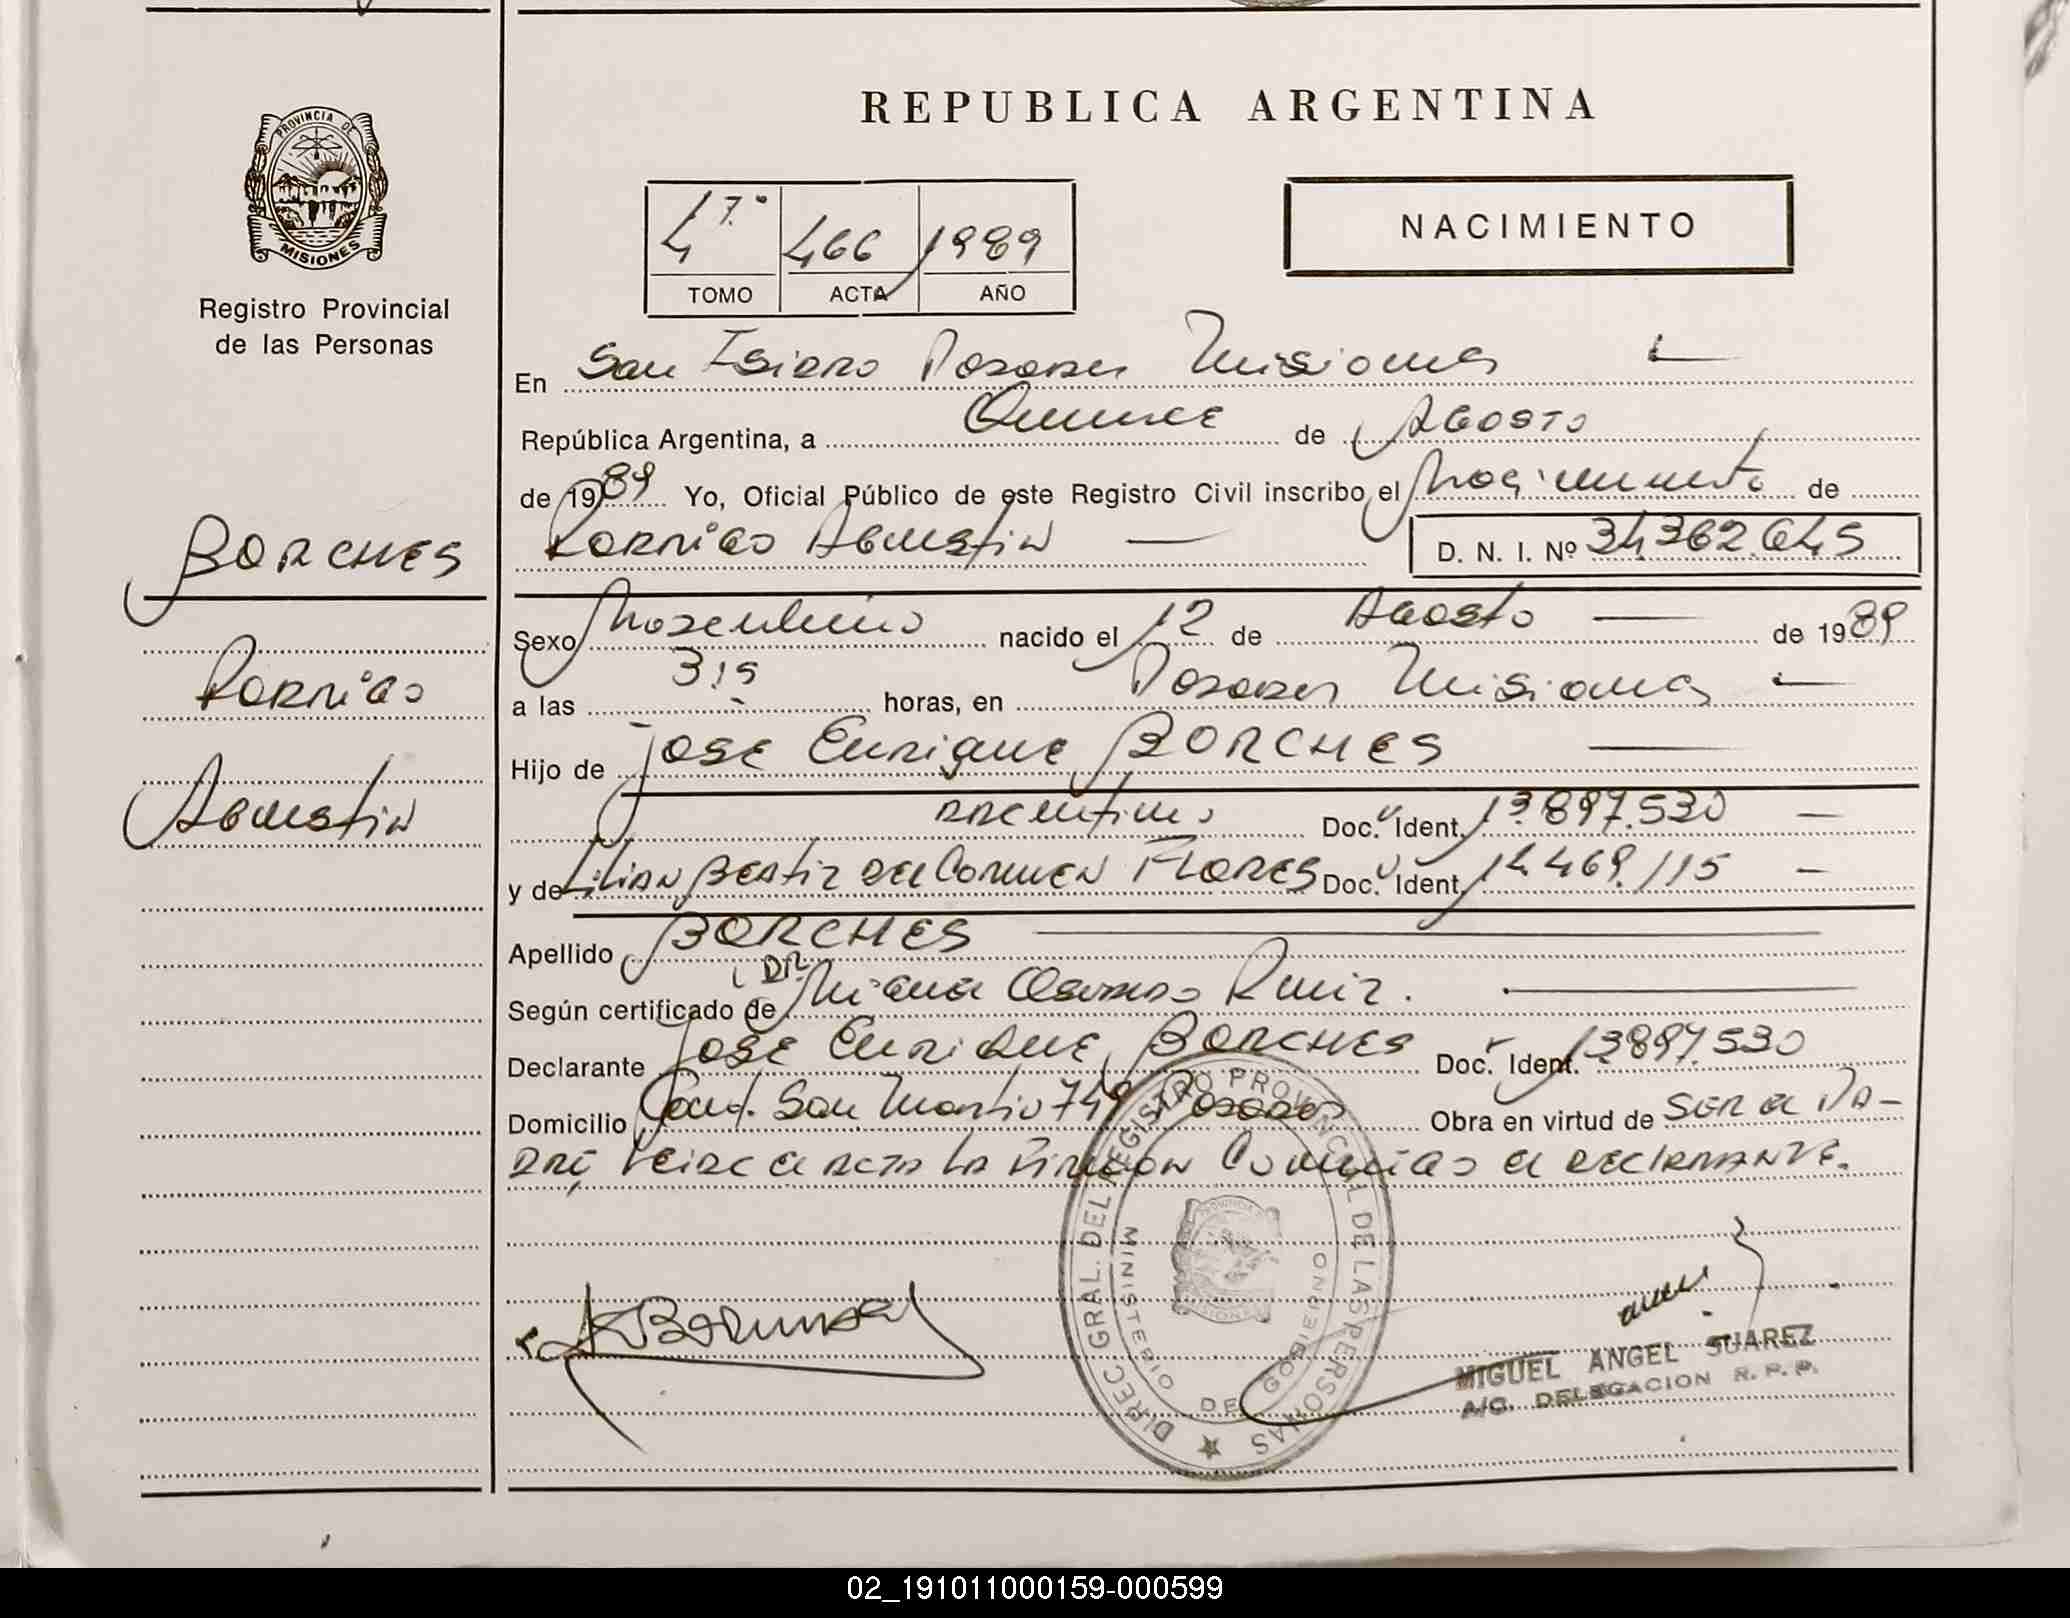 REPUBLICA ARGENTINA
PROVINCIA DE
MISIONES
Registro Provincial
de las Personas
4 7.º 466 1989
TOMO ACTA AÑO
NACIMIENTO
En San Isidro Posadas Misiones
República Argentina, a Quince de Agosto
de 1989 Yo, Oficial Público de este Registro Civil inscribo el Nacimiento de
Rodrigo Agustin D. N. I. Nº 34362.645
BORCHES
Rodrigo
Agustin
Sexo Masculino nacido el 12 de Agosto de 1989
a las 3,15 horas, en Posadas Misiones
Hijo de Jose Enrique BORCHES
argentino Doc. Ident. 13.897.530
y de Lilian Beatriz del Carmen FLORES Doc. Ident. 14.469.115
Apellido BORCHES
Según certificado de DR. Ruiz.
Declarante Jose Enrique BORCHES Doc. Ident. 13897.530
Domicilio San Martin 749 Posadas Obra en virtud de ser el Pa-
dre, Leida el acta la firman conmigo el declarante.
DIREC. GRAL. DEL REGISTRO PROVINCIAL DE LAS PERSONAS
MINISTERIO DE GOBIERNO
MIGUEL ANGEL SUAREZ
A/C. DELEGACION R. P. P.
02_191011000159-000599